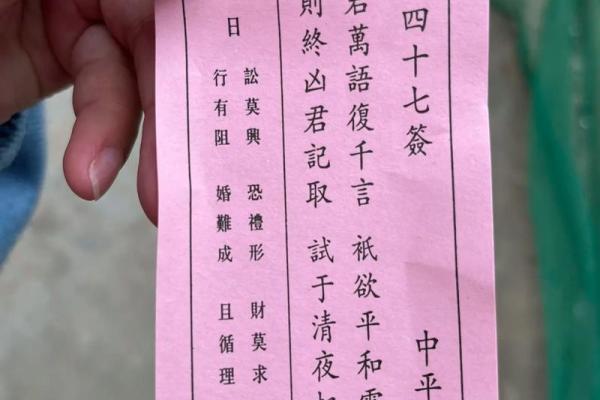 四十七簽 中平
君萬語復千言 衹欲平和
則終凶君記取 試于清夜
日
訟莫興 恐禮形 財莫求
行有阻 婚難成 且循理